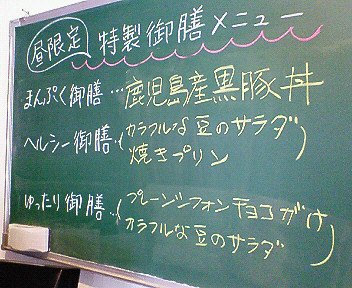 昼限定 特製御膳メニュー
まんぷく御膳…鹿児島産黒豚丼
ヘルシー御膳…(カラフルな豆のサラダ
焼きプリン)
ゆったり御膳…(プレーンシフォンチョコがけ
カラフルな豆のサラダ)